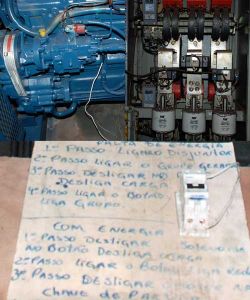 FALTA DE ENERGIA
1º PASSO LIGAR O DISJUNTOR
2º PASSO LIGAR O GRUPO GERADOR
3º PASSO DESLIGAR NO
DESLIGA CARGA
4º PASSO LIGAR O BOTÃO
LIGA GRUPO.
COM ENERGIA
1º PASSO DESLIGAR
NO BOTÃO DESLIGA CARGA
2º PASSO LIGAR O BOTÃO LIGA REDE
3º PASSO DESLIGAR O GRUPO NA
CHAVE DE